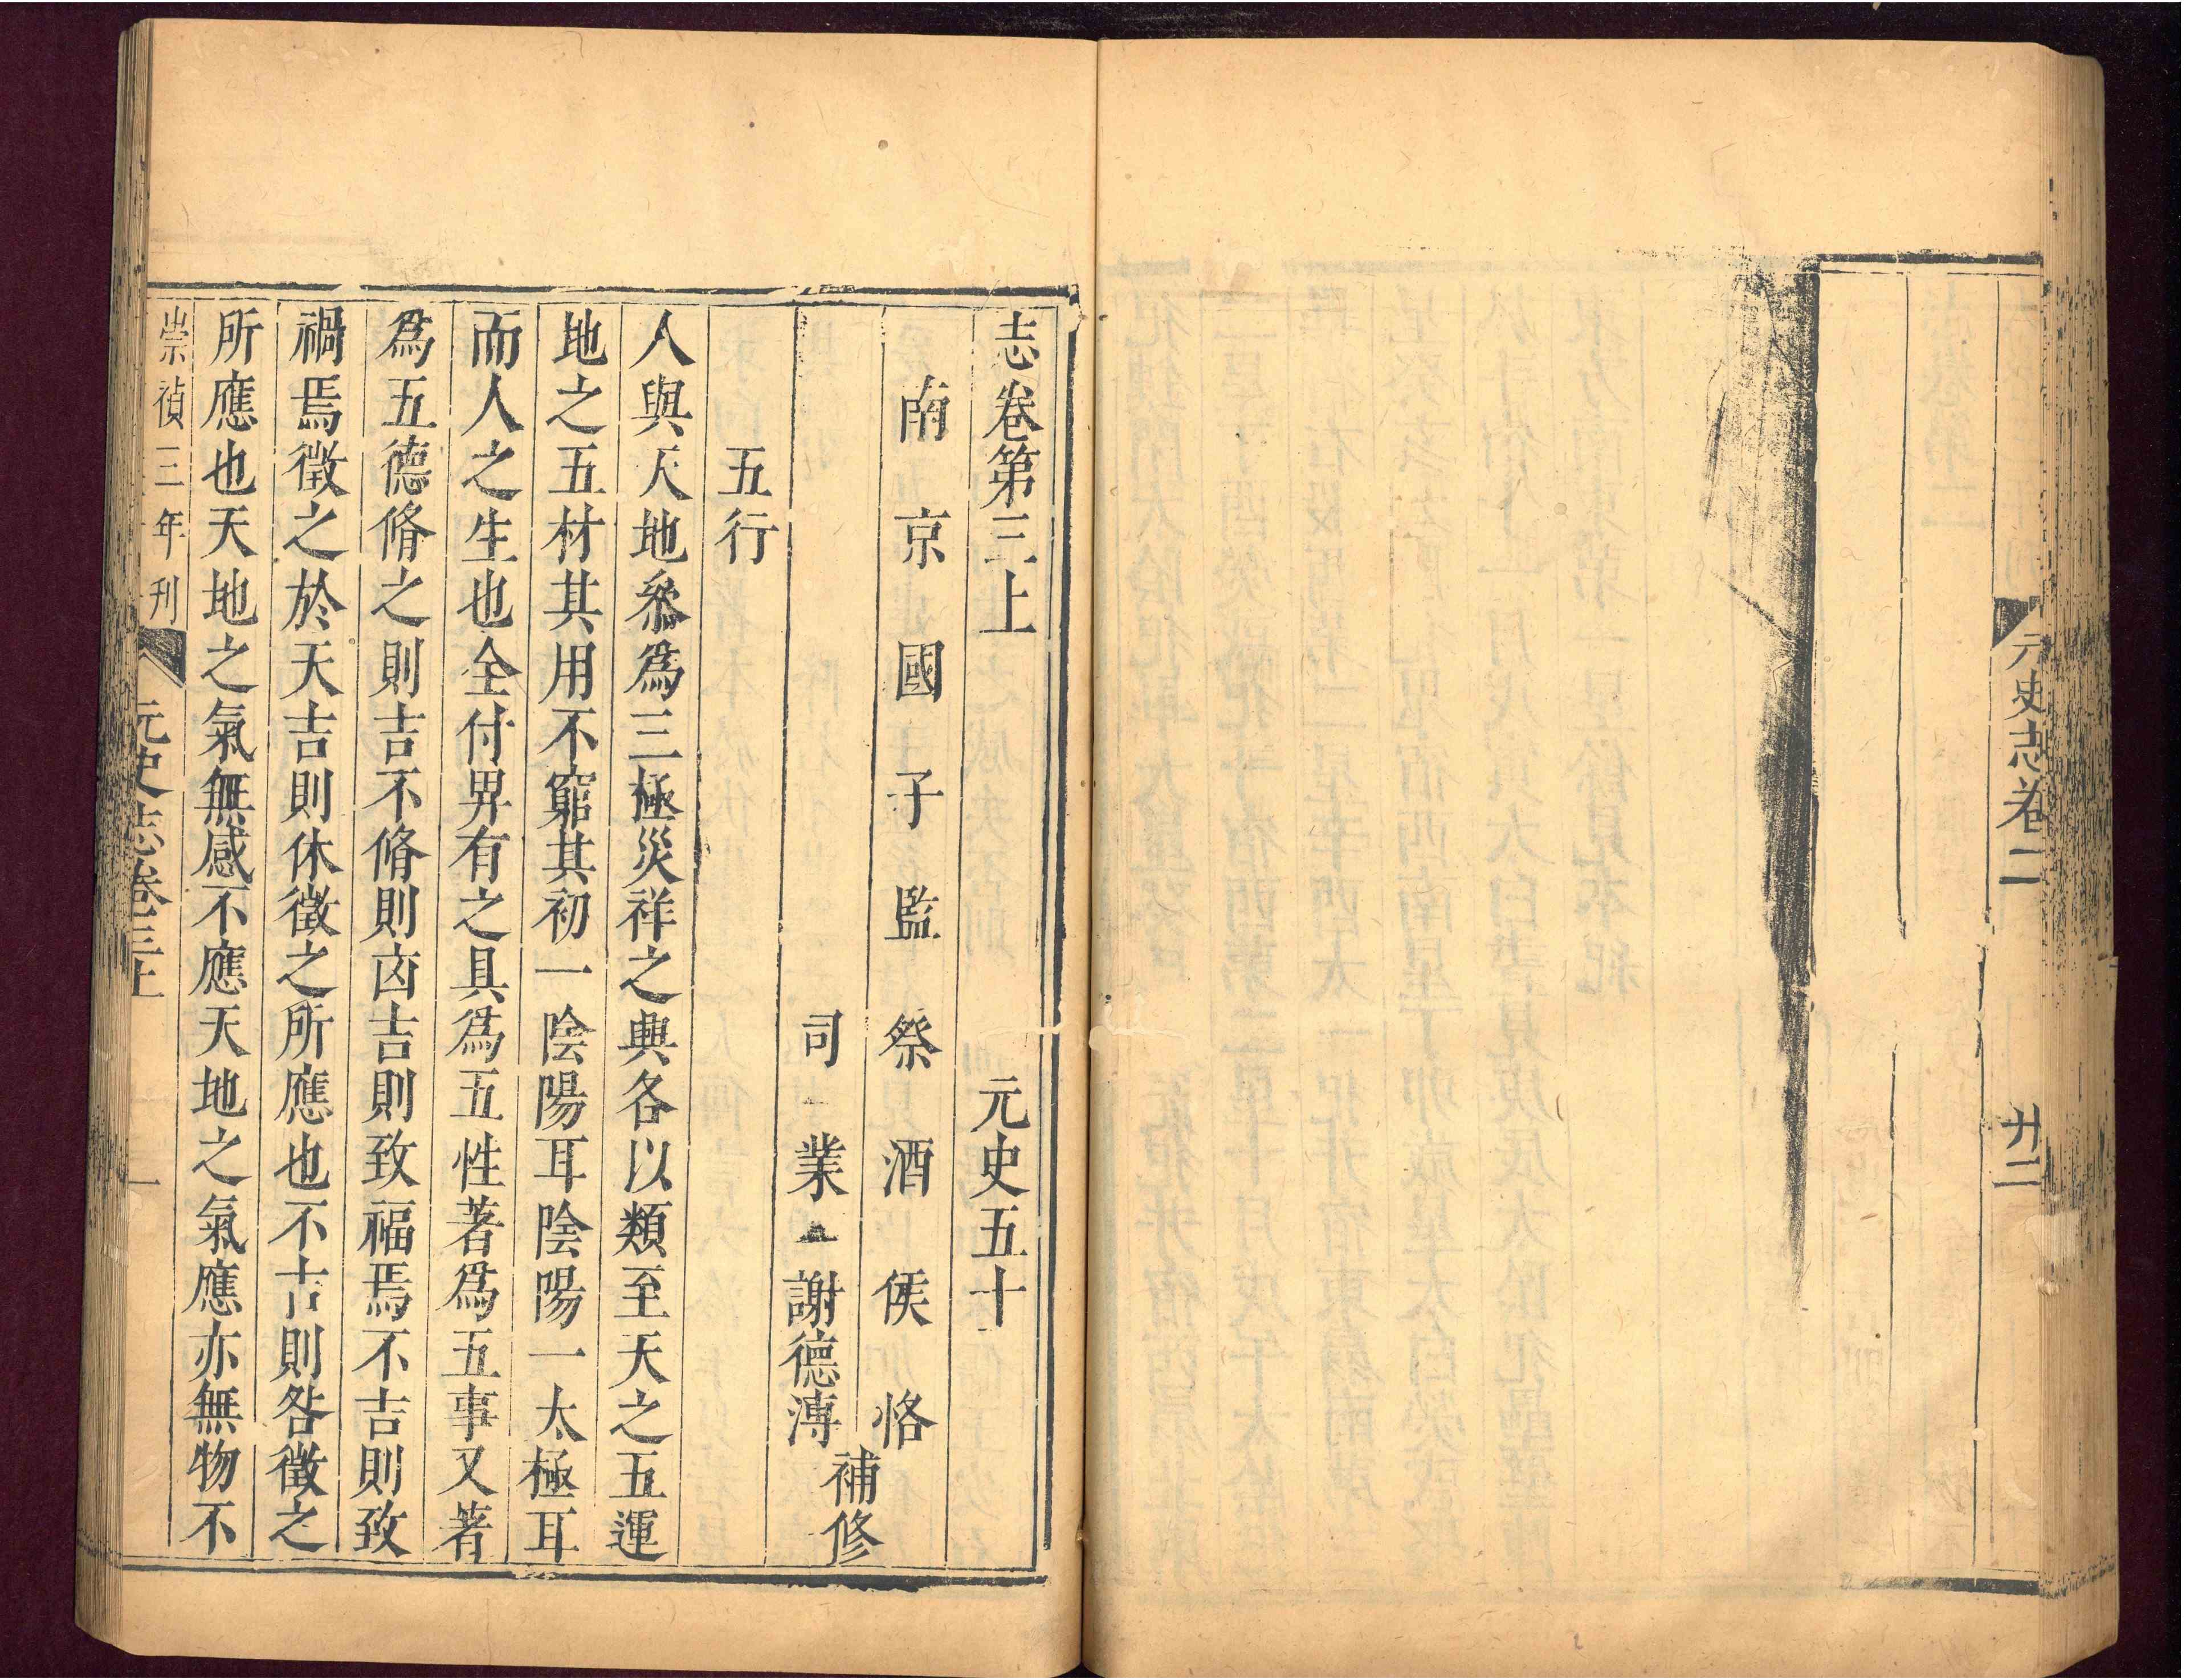 元史志卷二
廿二
志卷第三上 元史五十
南京國子監祭酒侯恪
司業謝德溥
補修
五行
人與天地叅爲三極災祥之興各以類至天之五運
地之五材其用不窮其初一陰陽耳陰陽一太極耳
而人之生也全付畀有之具爲五性著爲五事又著
爲五德脩之則吉不脩則凶吉則致福焉不吉則致
禍焉徵之於天吉則休徵之所應也不吉則咎徵之
所應也天地之氣無感不應天地之氣應亦無物不
崇禎三年刊
元史志卷三上
一